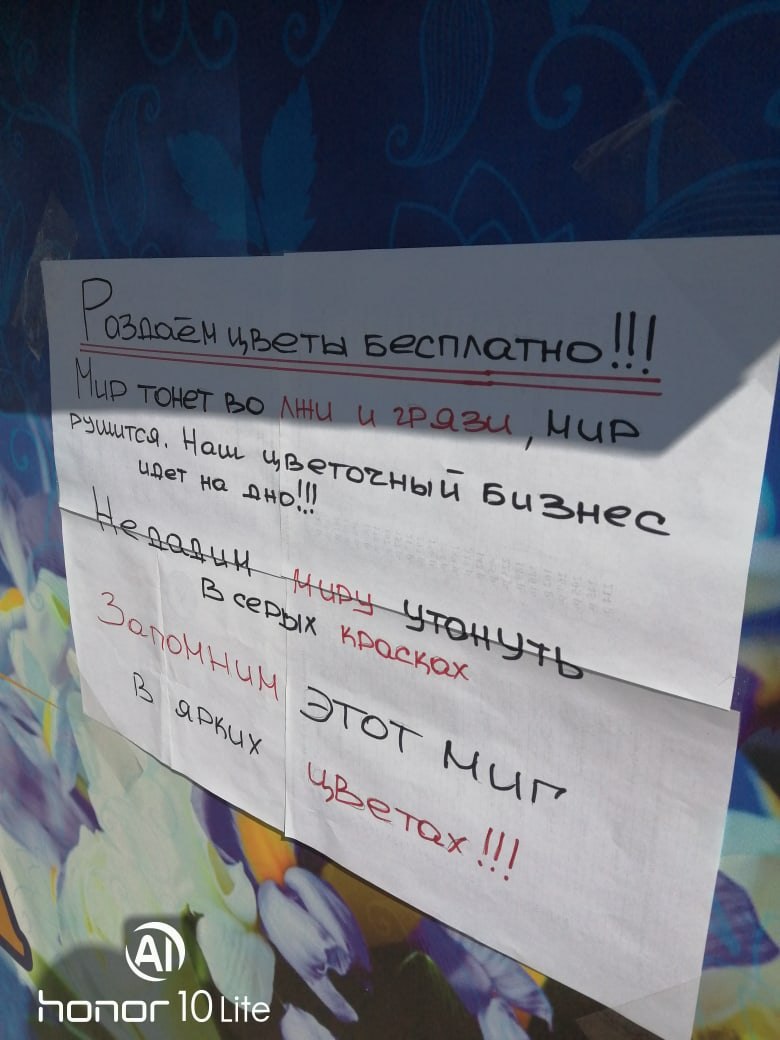 Раздаём цветы бесплатно!!!
Мир тонет во лжи и грязи, мир
рушится. Наш цветочный бизнес
идет на дно!!!
Не дадим миру утонуть
В серых красках
Запомним этот миг
В ярких цветах!!!
AI
honor 10 Lite